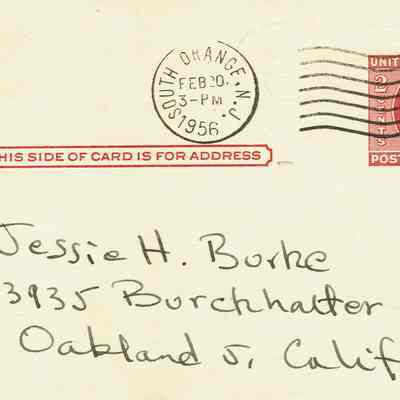 SOUTH ORANGE, N.J.
FEB 20,
3-PM
1956
UNIT
2 CENTS
POST
HIS SIDE OF CARD IS FOR ADDRESS
Jessie H. Burke
3935 Burckhalter
Oakland 5, Calif